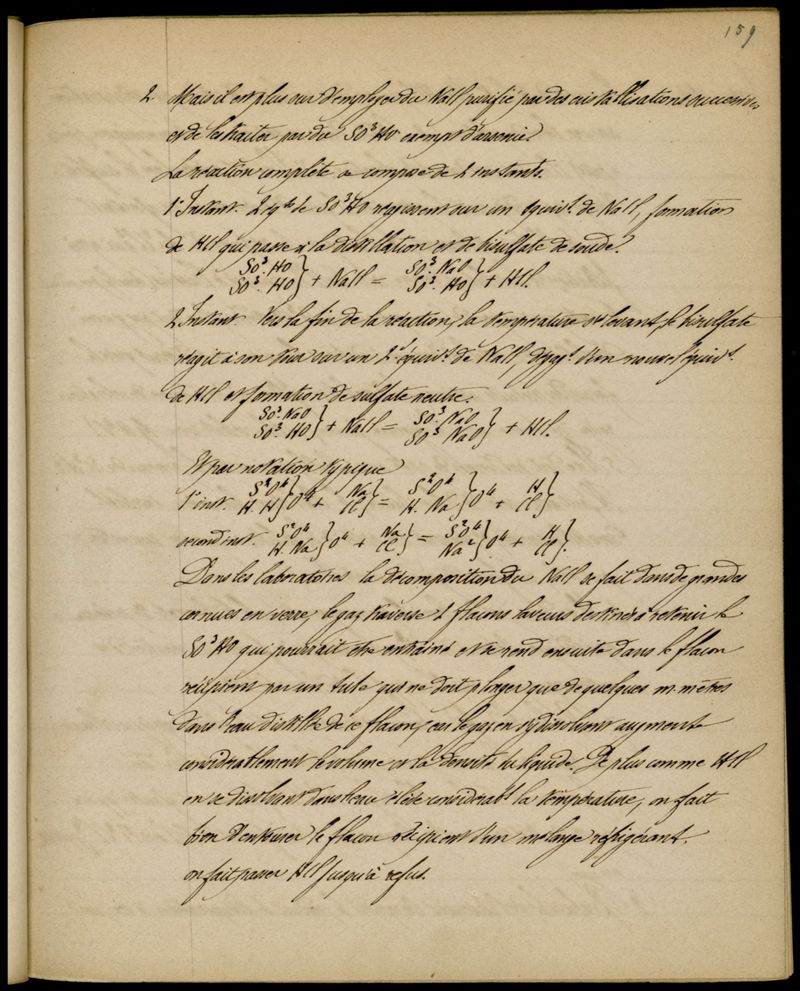 159
2. Mais il est plus sur d'employer du NaCl purifié par des cristallisations successives
et de le traiter par du SO³HO exempt d'arsenic.
La réaction complète se compose de 2 instants.
1º Instant. 2 eqts de SO³HO réagissent sur un équivt. de NaCl, formation
de HCl qui passe à la distillation et de bisulfate de soude.
SO³.HO SO³.NaO
SO³.HO} + NaCl = SO³.HO} + HCl.
2 Instant. Vers la fin de la réaction, la température s'élevant, le bisulfate
réagit à son tour sur un 2e équivt. de NaCl, dégagt. d'un nouvel équivt.
de HCl et formation de sulfate neutre.
SO³.NaO SO³.NaO
SO³.HO} + NaCl = SO³.NaO} + HCl.
Et par notation typique
S²O⁴ Na S²O⁴ H
1º inst. H.H}O⁴ + Cl} = H.Na}O⁴ + Cl}
S²O⁴ Na S²O⁴ H
second inst. H.Na}O⁴ + Cl} = Na²}O⁴ + Cl}.
Dans les laboratoires la décomposition du NaCl se fait dans de grandes
cornues en verre, le gaz traverse 2 flacons laveurs destinés à retenir le
SO³HO qui pourrait être entrainé et se rend ensuite dans le flacon
récipient par un tube qui ne doit plonger que de quelques m.mètres
dans l'eau distillée de ce flacon, car le gaz en s'y dissolvant augmente
considérablement le volume et la densité du liquide. De plus comme HCl
en se dissolvant dans l'eau élève considérabt la température, on fait
bien d'entourer le flacon récipient d'un mélange réfrigérant.
on fait passer HCl jusqu'à refus.